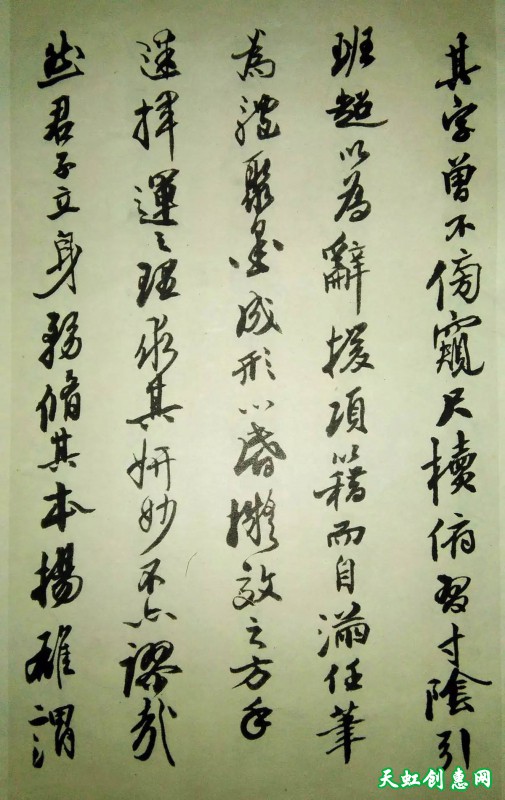 其字曾不傍窺尺牘俯習寸陰引
班超以為辭援項籍而自滿任筆
為體聚墨成形心昏擬效之方手
迷揮運之理求其妍妙不亦謬哉
然君子立身務脩其本揚雄謂
天虹创惠网